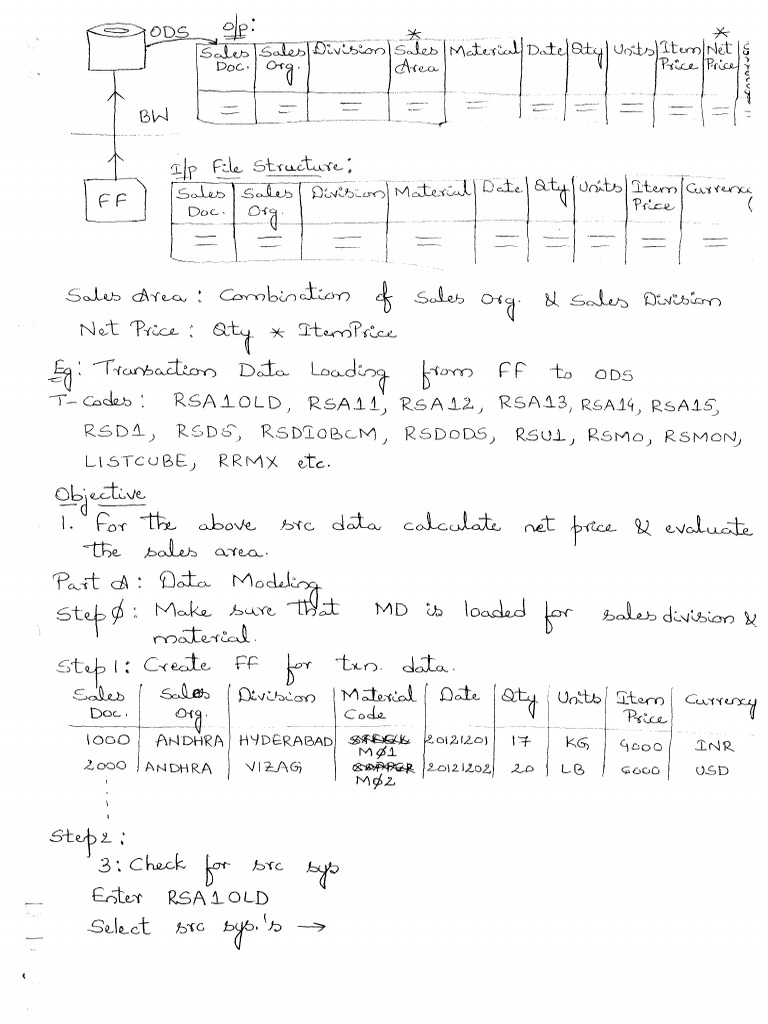 ODS O/p:
Sales Doc. | Sales Org. | Division | * Sales Area | Material | Date | Qty | Units | Item Price | * Net Price | Currency
BW
I/p File Structure:
FF
Sales Doc. | Sales Org. | Division | Material | Date | Qty | Units | Item Price | Currency
Sales Area : Combination of Sales Org. & Sales Division
Net Price : Qty * ItemPrice
Eg: Transaction Data Loading from FF to ODS
T-Codes : RSA1OLD, RSA11, RSA12, RSA13, RSA14, RSA15,
RSD1, RSDS, RSDIOBCM, RSDODS, RSU1, RSMO, RSMON,
LISTCUBE, RRMX etc.
Objective
1. For the above src data calculate net price & evaluate
the sales area.
Part A: Data Modeling
Step 0: Make sure that MD is loaded for sales division &
material.
Step 1: Create FF for txn. data.
Sales Doc. | Sales Org. | Division | Material Code | Date | Qty | Units | Item Price | Currency
1000 | ANDHRA | HYDERABAD | MØ1 | 20121201 | 17 | KG | 4000 | INR
2000 | ANDHRA | VIZAG | MØ2 | 20121202 | 20 | LB | 6000 | USD
Step 2:
3: Check for src sys
Enter RSA1OLD
Select src sys.'s →